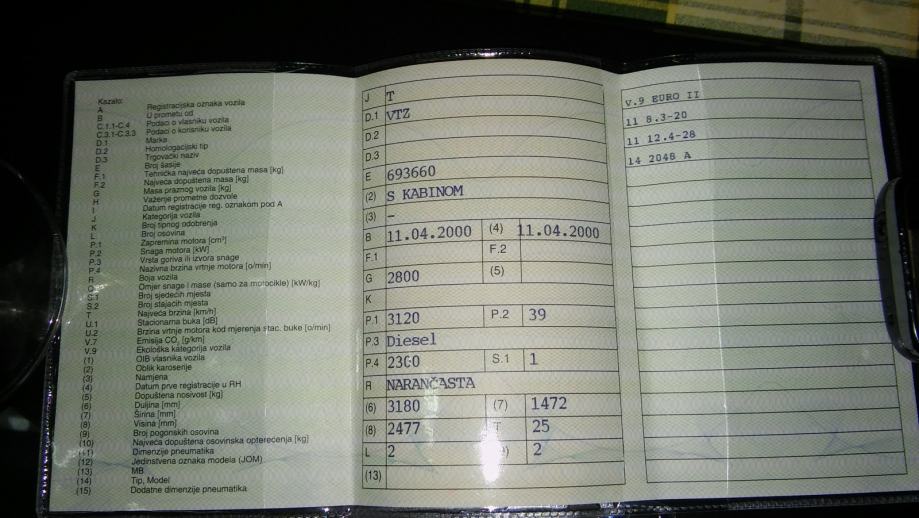 Kazalo:
A Registracijska oznaka vozila
B U prometu od
C.1.1-C.4 Podaci o vlasniku vozila
C.3.1-C.3.3 Podaci o korisniku vozila
D.1 Marka
D.2 Homologacijski tip
D.3 Trgovački naziv
E Broj šasije
F.1 Tehnička najveća dopuštena masa [kg]
F.2 Najveća dopuštena masa [kg]
G Masa praznog vozila [kg]
H Važenje prometne dozvole
I Datum registracije reg. oznakom pod A
J Kategorija vozila
K Broj tipnog odobrenja
L Broj osovina
P.1 Zapremina motora [cm³]
P.2 Snaga motora [kW]
P.3 Vrsta goriva ili izvora snage
P.4 Nazivna brzina vrtnje motora [o/min]
R Boja vozila
Q Omjer snage i mase (samo za motocikle) [kW/kg]
S.1 Broj sjedećih mjesta
S.2 Broj stajaćih mjesta
T Najveća brzina [km/h]
U.1 Stacionarna buka [dB]
U.2 Brzina vrtnje motora kod mjerenja stac. buke [o/min]
V.7 Emisija CO₂ [g/km]
V.9 Ekološka kategorija vozila
(1) OIB vlasnika vozila
(2) Oblik karoserije
(3) Namjena
(4) Datum prve registracije u RH
(5) Dopuštena nosivost [kg]
(6) Duljina [mm]
(7) Širina [mm]
(8) Visina [mm]
(9) Broj pogonskih osovina
(10) Najveća dopuštena osovinska opterećenja [kg]
(11) Dimenzije pneumatika
(12) Jedinstvena oznaka modela (JOM)
(13) MB
(14) Tip, Model
(15) Dodatne dimenzije pneumatika
J T
D.1 VTZ
D.2
D.3
E 693660
(2) S KABINOM
(3) –
B 11.04.2000 (4) 11.04.2000
F.1 F.2
G 2800 (5)
K
P.1 3120 P.2 39
P.3 Diesel
P.4 S.1 1
R NARANČASTA
(6) 3180 (7) 1472
(8) 2477 T 25
L 2 2
(13)
V.9 EURO II
11 8.3-20
11 12.4-28
14 2048 A